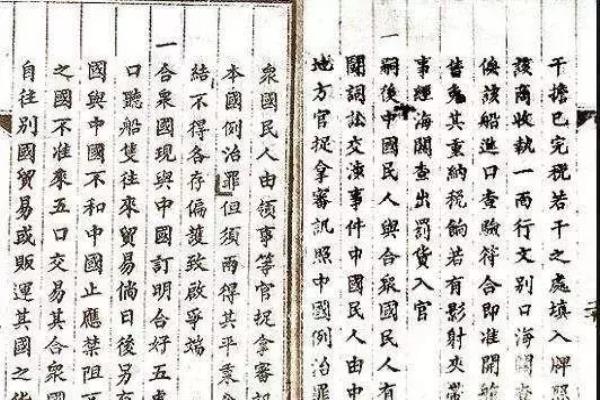 干擔已完稅若干之處填入牌照
該商收執一面行文別口海關查
俟該船進口查驗符合即准開艙
皆免其重納稅餉若有影射夾帶
事經海關查出罰貨入官
一嗣後中國民人與合衆國民人有
鬭詞訟交涉事件中國民人由中
地方官捉拿審訊照中國例治罪
衆國民人由領事等官捉拿審訊
本國例治罪但須兩得其平秉公
結不得各存偏護致啟爭端
一合衆國現與中國訂明合好五處
口聽船隻往來貿易倘日後另有
國與中國不和中國止應禁阻不
之國不准來五口交易其合衆國
自往別國貿易或販運其國之貨